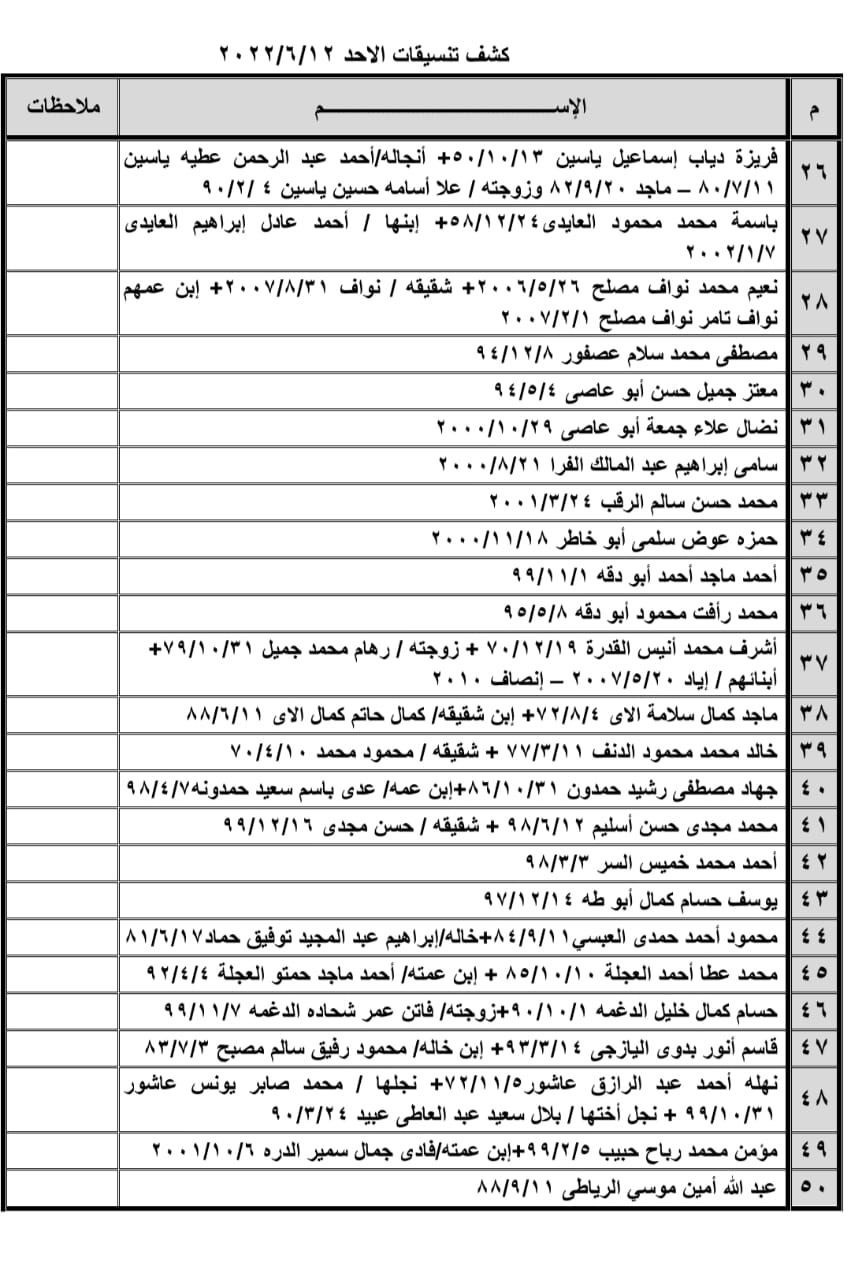 كشف تنسيقات الاحد ٢٠٢٢/٦/١٢
م الإســـــــم ملاحظات
٢٦ فريزة دياب إسماعيل ياسين ٥٠/١٠/١٣+ أنجاله/أحمد عبد الرحمن عطيه ياسين
٨٠/٧/١١ – ماجد ٨٢/٩/٢٠ وزوجته / علا أسامه حسين ياسين ٩٠/٢/٤
٢٧ باسمة محمد محمود العايدى٥٨/١٢/٢٤+ إبنها / أحمد عادل إبراهيم العايدى
٢٠٠٢/١/٧
٢٨ نعيم محمد نواف مصلح ٢٠٠٦/٥/٢٦+ شقيقه / نواف ٢٠٠٧/٨/٣١+ إبن عمهم
نواف تامر نواف مصلح ٢٠٠٧/٢/١
٢٩ مصطفى محمد سلام عصفور ٩٤/١٢/٨
٣٠ معتز جميل حسن أبو عاصى ٩٤/٥/٤
٣١ نضال علاء جمعة أبو عاصى ٢٠٠٠/١٠/٢٩
٣٢ سامى إبراهيم عبد المالك الفرا ٢٠٠٠/٨/٢١
٣٣ محمد حسن سالم الرقب ٢٠٠١/٣/٢٤
٣٤ حمزه عوض سلمى أبو خاطر ٢٠٠٠/١١/١٨
٣٥ أحمد ماجد أحمد أبو دقه ٩٩/١١/١
٣٦ محمد رأفت محمود أبو دقه ٩٥/٥/٨
٣٧ أشرف محمد أنيس القدرة ٧٠/١٢/١٩ + زوجته / رهام محمد جميل ٧٩/١٠/٣١+
أبنائهم / إياد ٢٠٠٧/٥/٢٠ – إنصاف ٢٠١٠
٣٨ ماجد كمال سلامة الاى ٧٢/٨/٤+ إبن شقيقه/ كمال حاتم كمال الاى ٨٨/٦/١١
٣٩ خالد محمد محمود الدنف ٧٧/٣/١١ + شقيقه / محمود محمد ٧٠/٤/١٠
٤٠ جهاد مصطفى رشيد حمدون ٨٦/١٠/٣١+إبن عمه/ عدى باسم سعيد حمدونه٩٨/٤/٧
٤١ محمد مجدى حسن أسليم ٩٨/٦/١٢ + شقيقه / حسن مجدى ٩٩/١٢/١٦
٤٢ أحمد محمد خميس السر ٩٨/٣/٣
٤٣ يوسف حسام كمال أبو طه ٩٧/١٢/١٤
٤٤ محمود أحمد حمدى العبسي٨٤/٩/١١+خاله/إبراهيم عبد المجيد توفيق حماد٨١/٦/١٧
٤٥ محمد عطا أحمد العجلة ٨٥/١٠/١٠ + إبن عمته/ أحمد ماجد حمتو العجلة ٩٢/٤/٤
٤٦ حسام كمال خليل الدغمه ٩٠/١٠/١+زوجته/ فاتن عمر شحاده الدغمه ٩٩/١١/٧
٤٧ قاسم أنور بدوى اليازجى ٩٣/٣/١٤+ إبن خاله/ محمود رفيق سالم مصبح ٨٣/٧/٣
٤٨ نهله أحمد عبد الرازق عاشور٧٢/١١/٥+ نجلها / محمد صابر يونس عاشور
٩٩/١٠/٣١ + نجل أختها / بلال سعيد عبد العاطى عبيد ٩٠/٣/٢٤
٤٩ مؤمن محمد رباح حبيب ٩٩/٢/٥+إبن عمته/فادى جمال سمير الدره ٢٠٠١/١٠/٦
٥٠ عبد الله أمين موسي الرياطى ٨٨/٩/١١